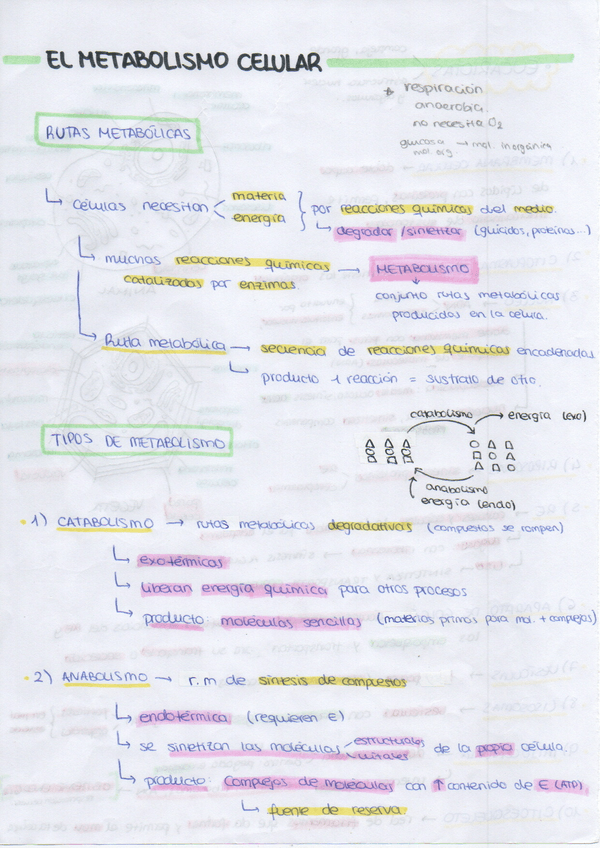 EL METABOLISMO CELULAR
* respiración
anaerobia.
no necesita O₂
glucosa → mol. inorgánica
mol. org.
RUTAS METABÓLICAS
↳ células necesitan < materia energía } por reacciones químicas del medio.
↳ degradar / sintetizar (glúcidos, proteínas...)
↳ muchas reacciones químicas → METABOLISMO
catalizadas por enzimas.
conjunto rutas metabólicas
producidas en la célula.
↳ Ruta metabólica → secuencia de reacciones químicas encadenadas
↳ producto 1 reacción = sustrato de otro.
catabolismo → energía (exo)
TIPOS DE METABOLISMO
anabolismo
energía (endo)
1) CATABOLISMO → rutas metabólicas degradativas (compuestos se rompen)
↳ exotérmicas
↳ liberan energía química para otros procesos
↳ producto: moléculas sencillas (materias primas para mol. + complejas)
2) ANABOLISMO → r.m de síntesis de compuestos
↳ endotérmica (requieren E)
↳ se sinetizan las moléculas < estructurales de la propia célula.
↳ producto: Complejos de moléculas con ↑ contenido de E (ATP)
↳ fuente de reserva